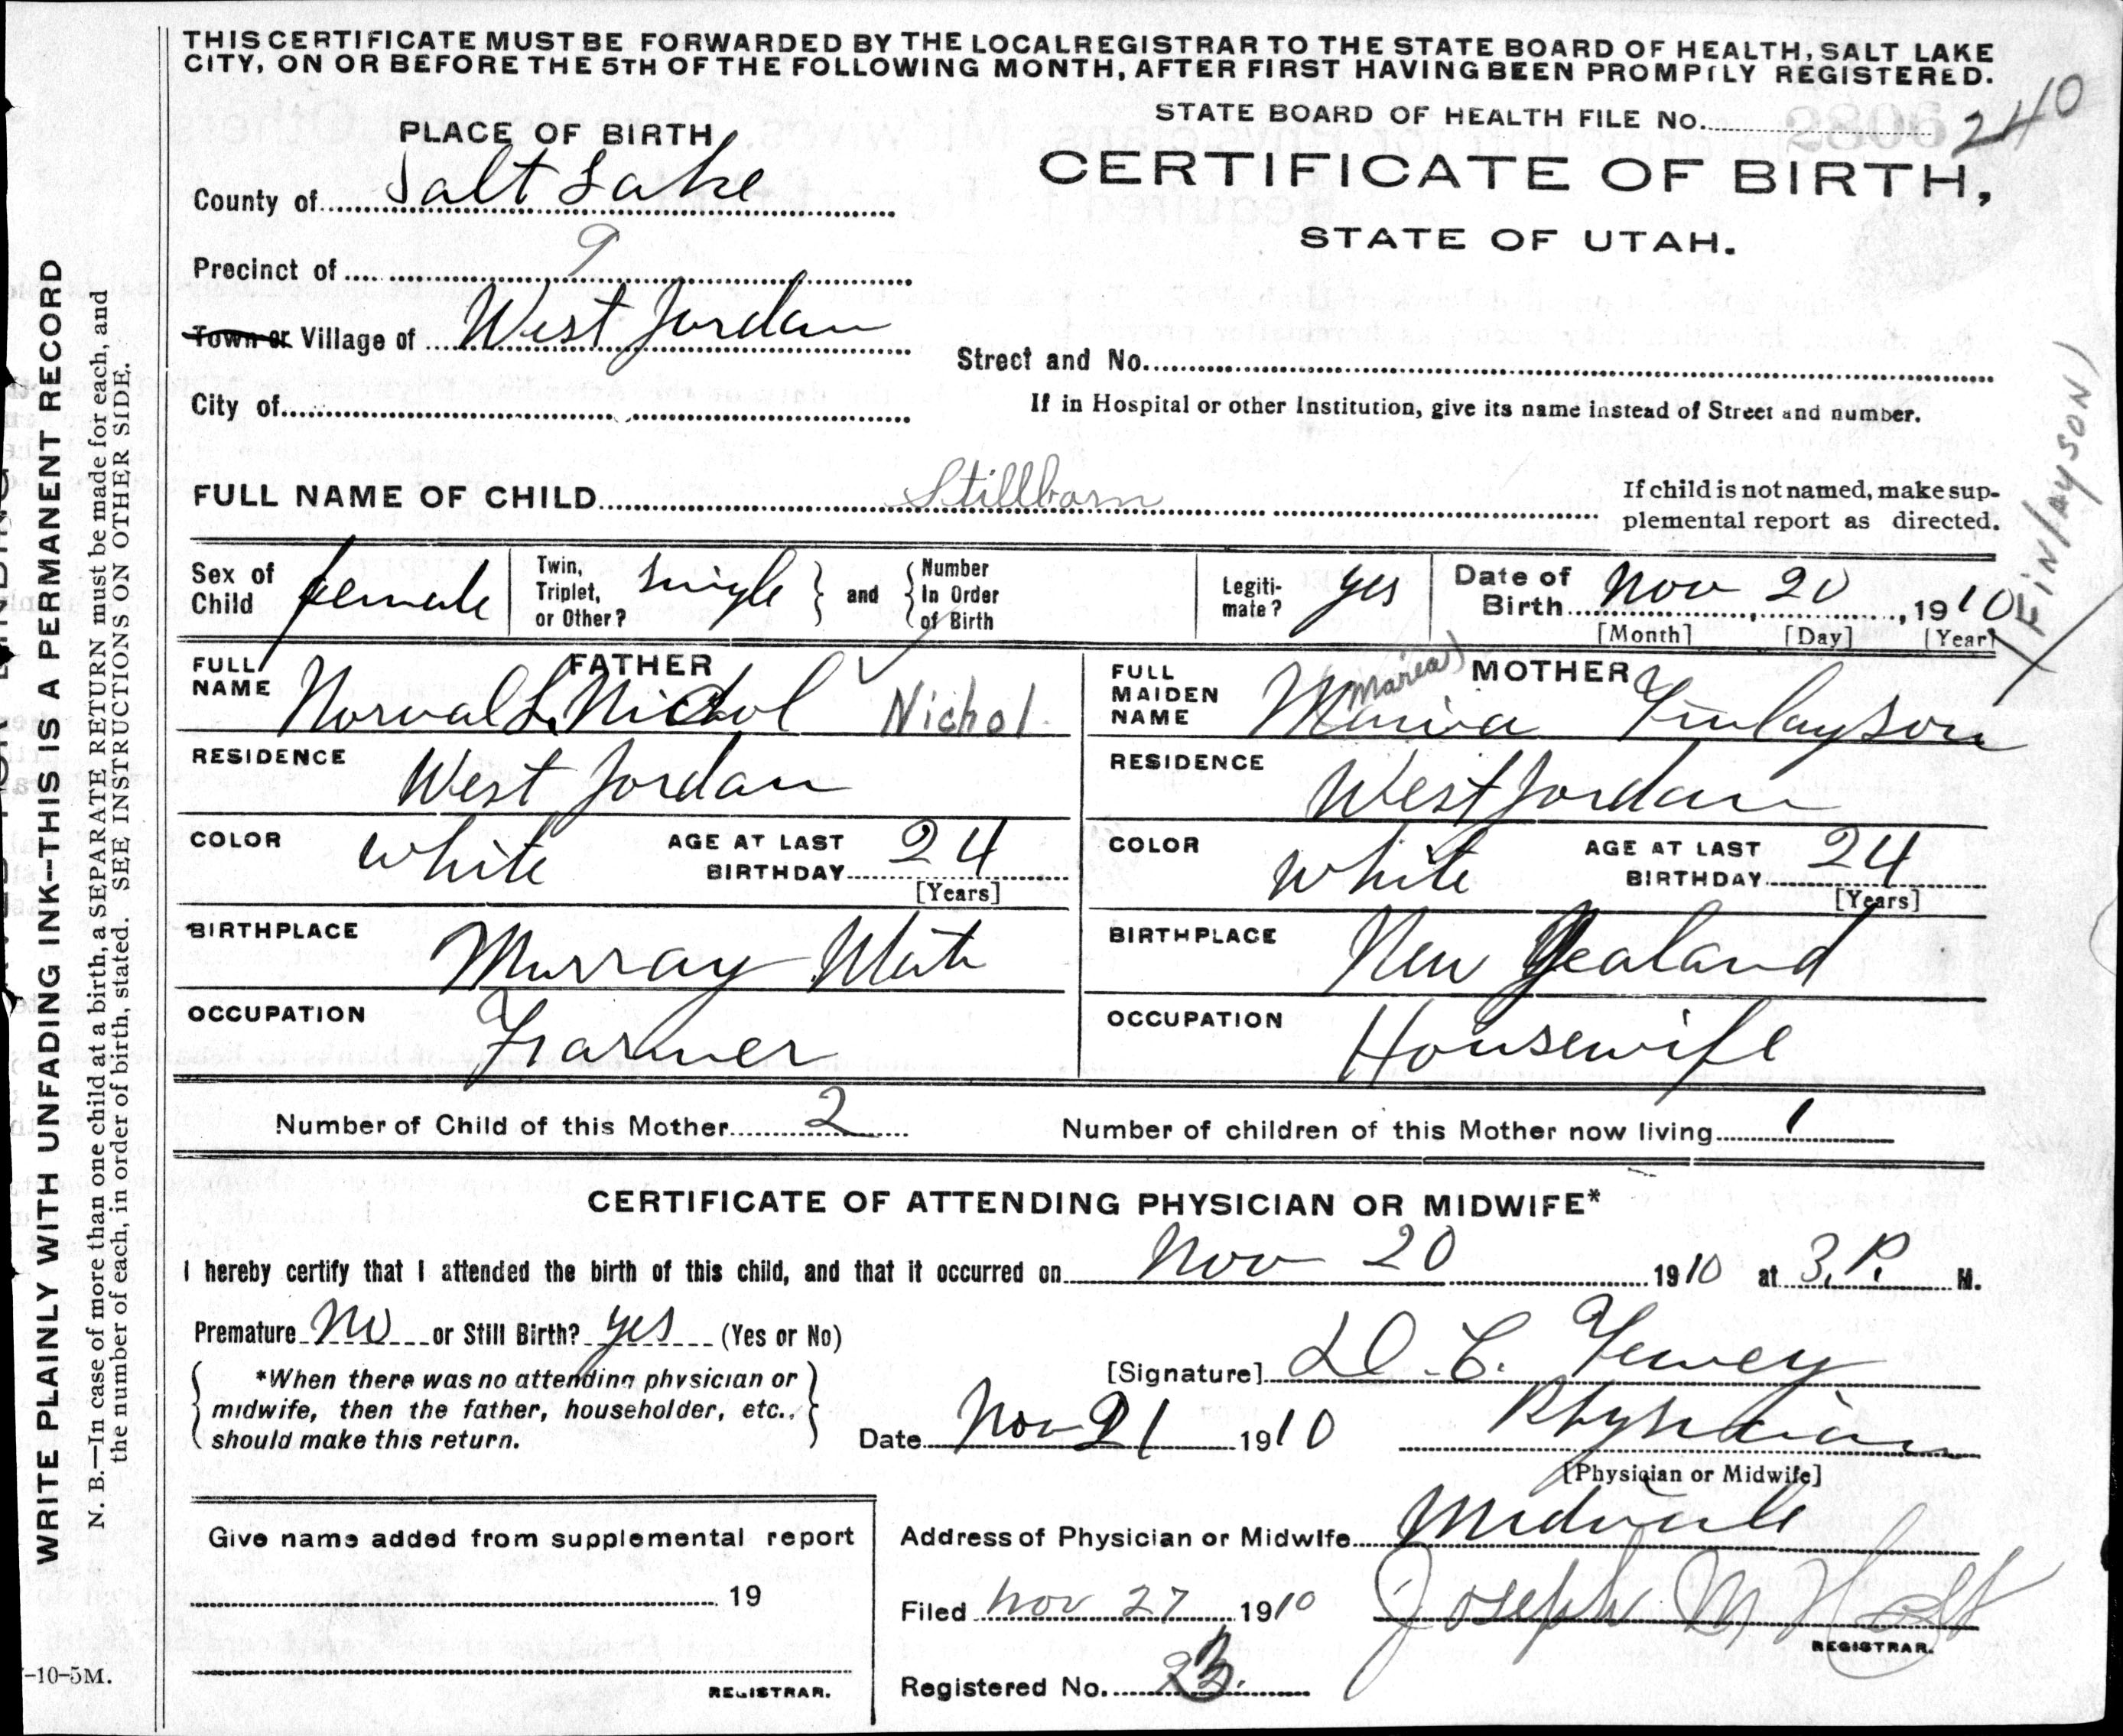 THIS CERTIFICATE MUST BE FORWARDED BY THE LOCAL REGISTRAR TO THE STATE BOARD OF HEALTH, SALT LAKE
CITY, ON OR BEFORE THE 5TH OF THE FOLLOWING MONTH, AFTER FIRST HAVING BEEN PROMPTLY REGISTERED.
STATE BOARD OF HEALTH FILE No. 240
PLACE OF BIRTH
CERTIFICATE OF BIRTH,
STATE OF UTAH.
County of Salt Lake
Precinct of 9
Town or Village of West Jordan
Street and No.
City of
If in Hospital or other Institution, give its name instead of Street and number.
FULL NAME OF CHILD Stillborn
If child is not named, make sup-
plemental report as directed.
(Finlayson)
Sex of Child female
Twin, Triplet, or Other? single and Number In Order of Birth
Legiti-mate? yes
Date of Birth Nov 20, 1910
[Month] [Day] [Year]
FATHER
FULL NAME Norval L. Nichol Nichol
RESIDENCE West Jordan
COLOR White AGE AT LAST BIRTHDAY 24
[Years]
BIRTHPLACE Murray Utah
OCCUPATION Farmer
MOTHER
FULL MAIDEN NAME Finlayson
RESIDENCE West Jordan
COLOR White AGE AT LAST BIRTHDAY 24
[Years]
BIRTHPLACE New Zealand
OCCUPATION Housewife
Number of Child of this Mother 2
Number of children of this Mother now living 1
CERTIFICATE OF ATTENDING PHYSICIAN OR MIDWIFE*
I hereby certify that I attended the birth of this child, and that it occurred on Nov 20 1910 at 3, P. M.
Premature No or Still Birth? yes (Yes or No)
*When there was no attending physician or
midwife, then the father, householder, etc.,
should make this return.
[Signature] D. C.
Date Nov 21 1910
Physician
[Physician or Midwife]
Give name added from supplemental report
19
REGISTRAR.
Address of Physician or Midwife Midvale
Filed Nov 27 1910
Joseph M Holt
REGISTRAR.
Registered No. 23.
WRITE PLAINLY WITH UNFADING INK--THIS IS A PERMANENT RECORD
N. B.—In case of more than one child at a birth, a SEPARATE RETURN must be made for each, and
the number of each, in order of birth, stated. SEE INSTRUCTIONS ON OTHER SIDE.
-10-5M.